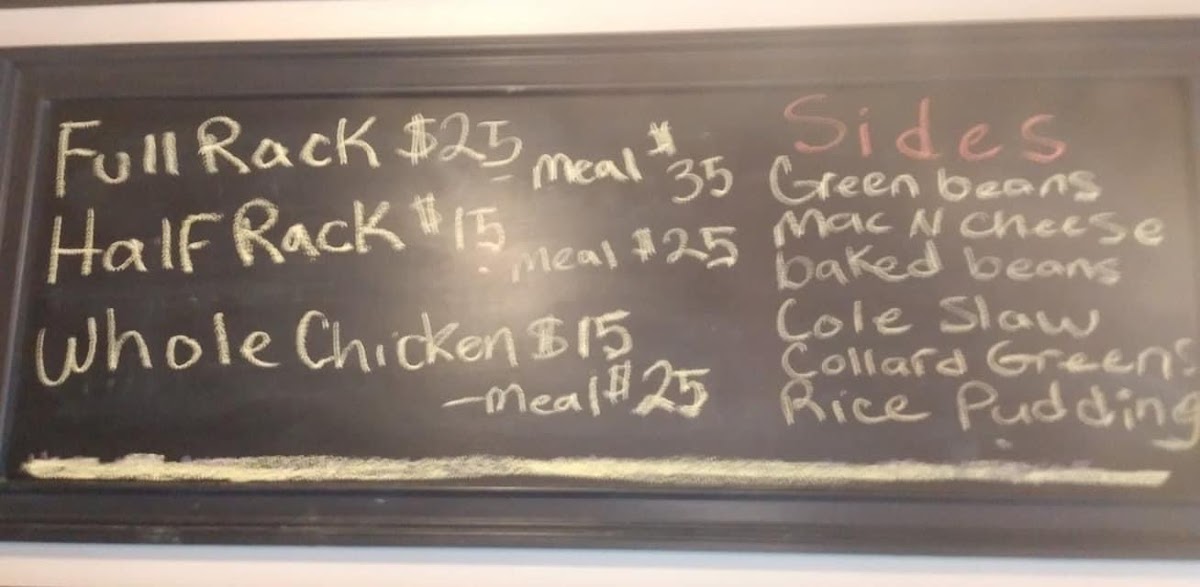 Full Rack $25 - meal $35
Half Rack $15 - meal $25
Whole Chicken $15
- meal $25
Sides
Green beans
Mac N Cheese
baked beans
Cole Slaw
Collard Greens
Rice Pudding